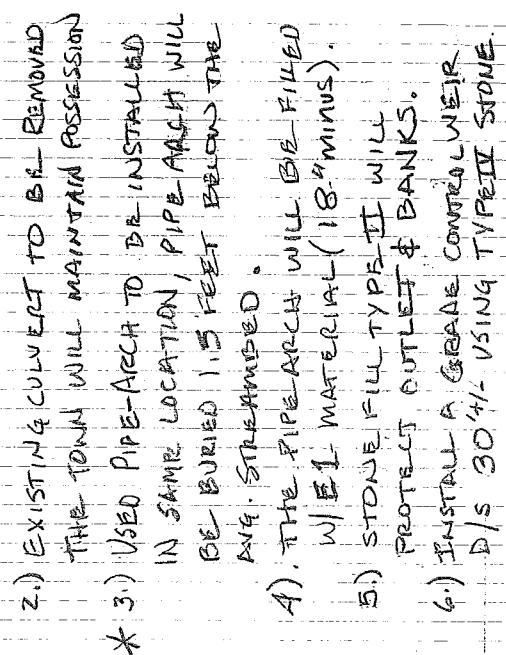 2.) EXISTING CULVERT TO BE REMOVED
THE TOWN WILL MAINTAIN POSSESSION
* 3.) USED PIPE-ARCH TO BE INSTALLED
IN SAME LOCATION, PIPE ARCH WILL
BE BURIED 1.5 FEET BELOW THE
AVG. STREAMBED.
4). THE PIPE ARCH WILL BE FILLED
W/ E1 MATERIAL (18-"MINUS).
5.) STONE FILL TYPE II WILL
PROTECT OUTLET & BANKS.
6.) INSTALL A GRADE CONTROL WEIR
D/S 30'+/- USING TYPE IV STONE.